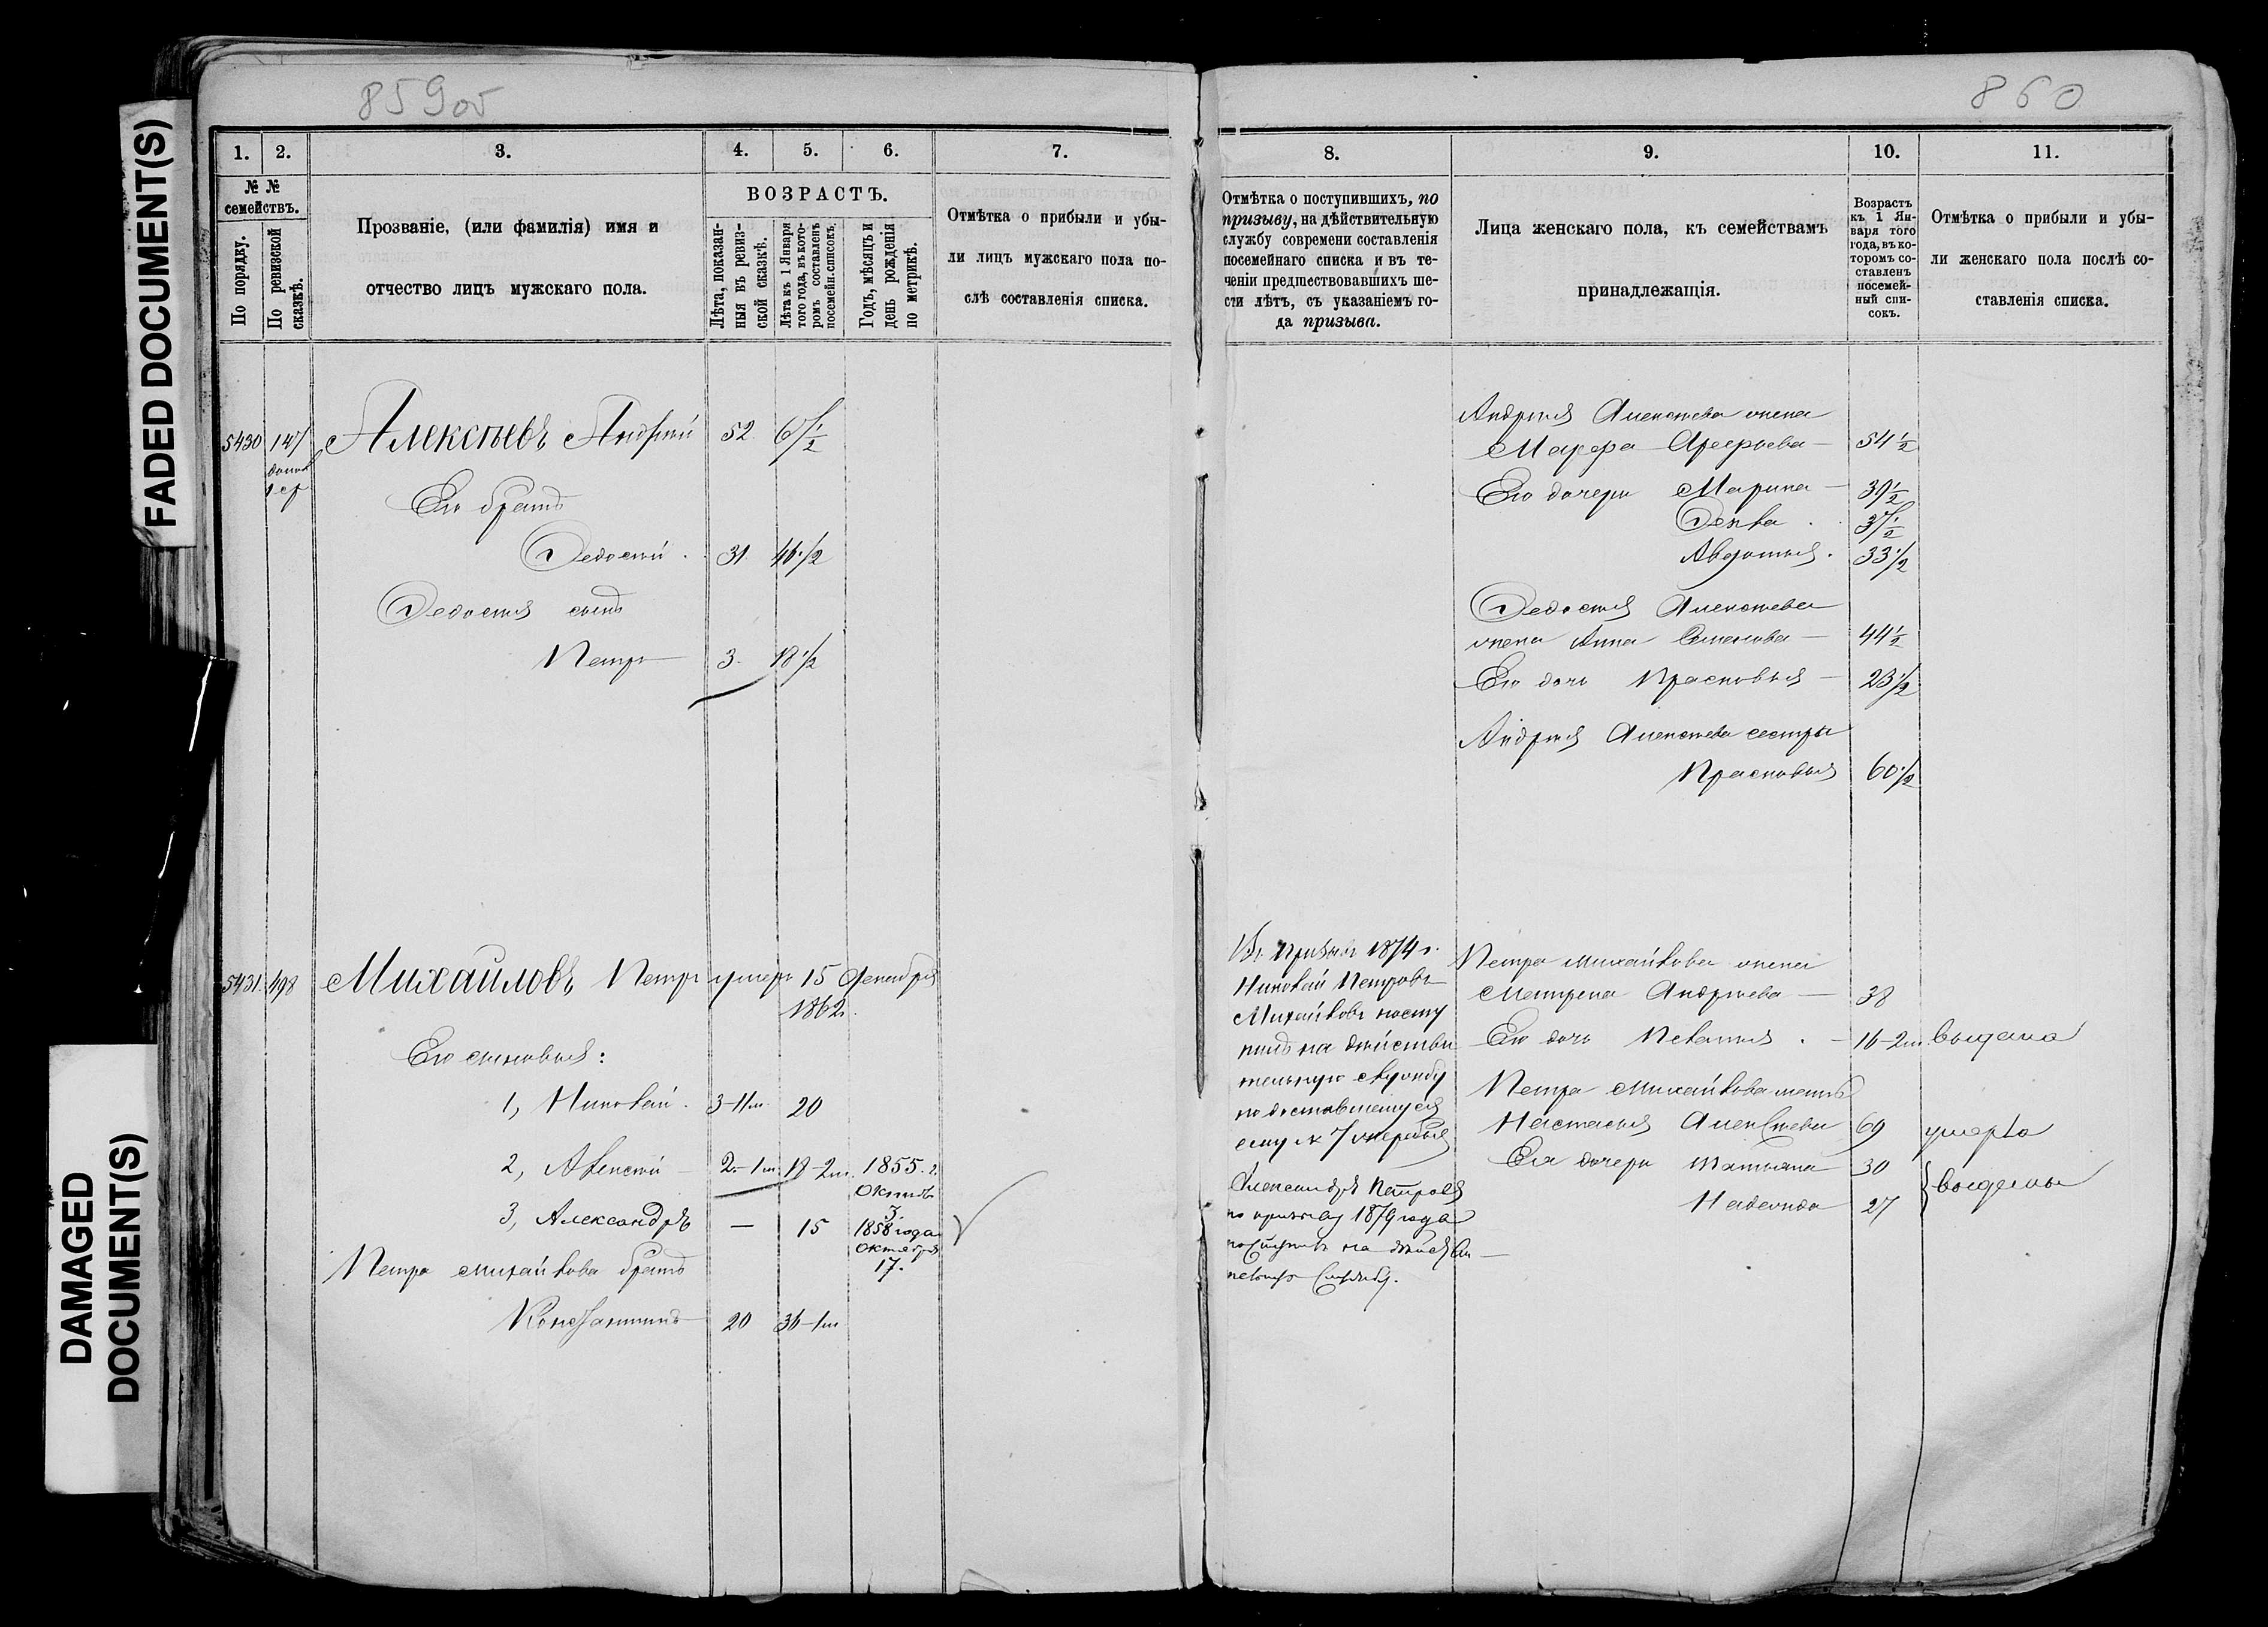 FADED DOCUMENT(S)
DAMAGED
DOCUMENT(S)
859об
1. 2. 3. 4. 5. 6. 7.
№ №
семействъ.
По порядку.
По ревизской
сказкѣ.
Прозваніе, (или фамилія) имя и
отчество лицъ мужскаго пола.
ВОЗРАСТЪ.
Лѣта, показан-
ныя въ ревиз-
ской сказкѣ.
Лѣта къ 1 Января
того года, въ кото-
ромъ составленъ
посемейн. списокъ.
Годъ, мѣсяцъ и
день рожденія
по метрикѣ.
Отмѣтка о прибыли и убы-
ли лицъ мужскаго пола по-
слѣ составленія списка.
5430 147 Алексѣевъ Андрей 52 67 1/2
Его братъ
Федосѣй 31 46 1/2
Федосѣя сынъ
Петръ 3 18 1/2
5431 498 Михайловъ Петръ умеръ 15 Декабря
1862
Его сыновья:
1, Николай 3-11м 20
2, Алексѣй 2-1м 18-2м 1855 г.
Октяб.
3.
3, Александръ — 15 1858 года
Октября
17.
Петра Михайлова братъ
Константинъ 20 36-1м
860
8. 9. 10. 11.
Отмѣтка о поступившихъ, по
призыву, на дѣйствительную
службу современи составленія
посемейнаго списка и въ те-
ченіи предшествовавшихъ ше-
сти лѣтъ, съ указаніемъ го-
да призыва.
Лица женскаго пола, къ семействамъ
принадлежащія.
Возрастъ
къ 1 Ян-
варя того
года, въ ко-
торомъ со-
ставленъ
посемей-
ный спи-
сокъ.
Отмѣтка о прибыли и убы-
ли женскаго пола послѣ со-
ставленія списка.
Андрея Алексѣева жена
Марфа 54 1/2
Его дочери Марина 39 1/2
Фекла 37 1/2
Авдотья 33 1/2
Федосѣя Алексѣева
жена Анна Семенова 44 1/2
Его дочь Прасковья 23 1/2
Андрея Алексѣева сестры
Прасковья 60 1/2
Въ призывъ 1874 г.
Николай Петровъ
Михайловъ посту
пилъ на дѣйстви
тельную службу
по доставшемуся
ему № 7 жеребья
Александръ Петровъ
по призыву 1879 года
поступилъ на дѣйстви
тельную службу.
Петра Михайлова жена
Матрена Андреева 38
Его дочь Пелагея 16-2м выдана
Петра Михайлова мать
Настасья Алексѣева 69 умерла
Ея дочери Татьяна 30
Надежда 27 выданы